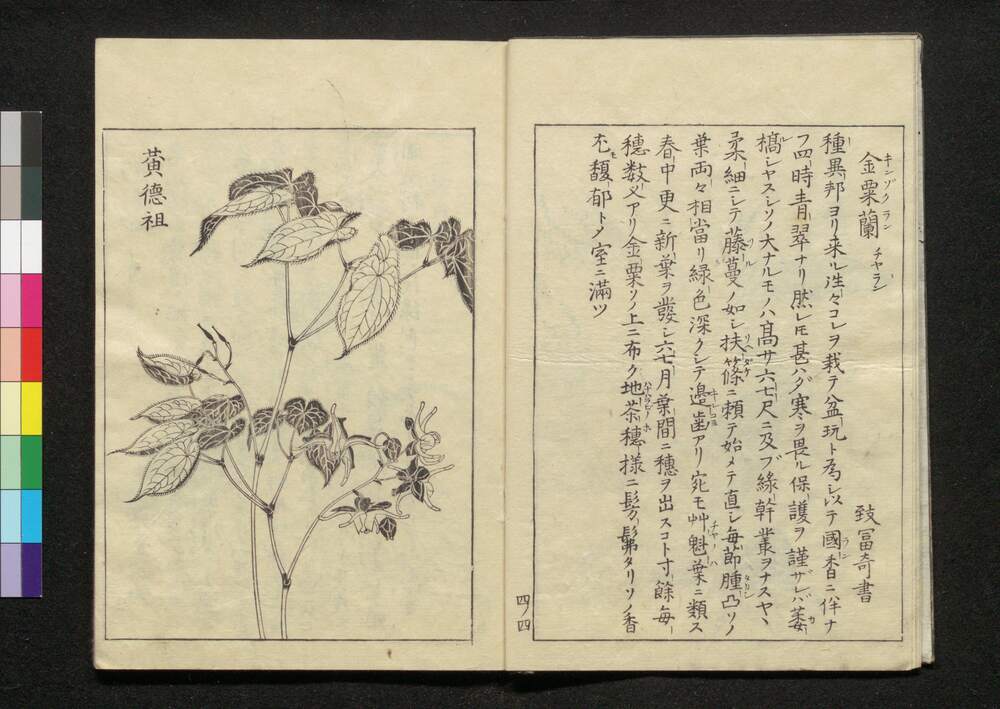 金粟蘭 キンゾクラン チヤラン 致冨奇書
種異邦ヨリ来ル徃々コレヲ栽テ盆玩ト為シ以テ國香ニ伴ナ
フ四時青翠ナリ然レ𪜈甚ハダ寒ヲ畏ル保護ヲ謹ザレバ萎
槁シヤスシソノ大ナルモノハ髙サ六七尺ニ及ブ緑幹叢ヲナスヤヽ
柔細ニシテ藤蔓ノ如シ扶篠ニ頼テ始メテ直シ毎節腫凸ソノ
葉両々相當リ緑色深クシテ邉歯アリ宛モ艸魁葉ニ類ス
春中更ニ新葉ヲ發シ六七月葉間ニ穗ヲ出スコト寸餘毎
穗数叉アリ金粟ソノ上ニ布ク地茶穗様ニ髣髴タリソノ香
尤馥郁トメ室ニ滿ツ
四ノ四
黄德祖